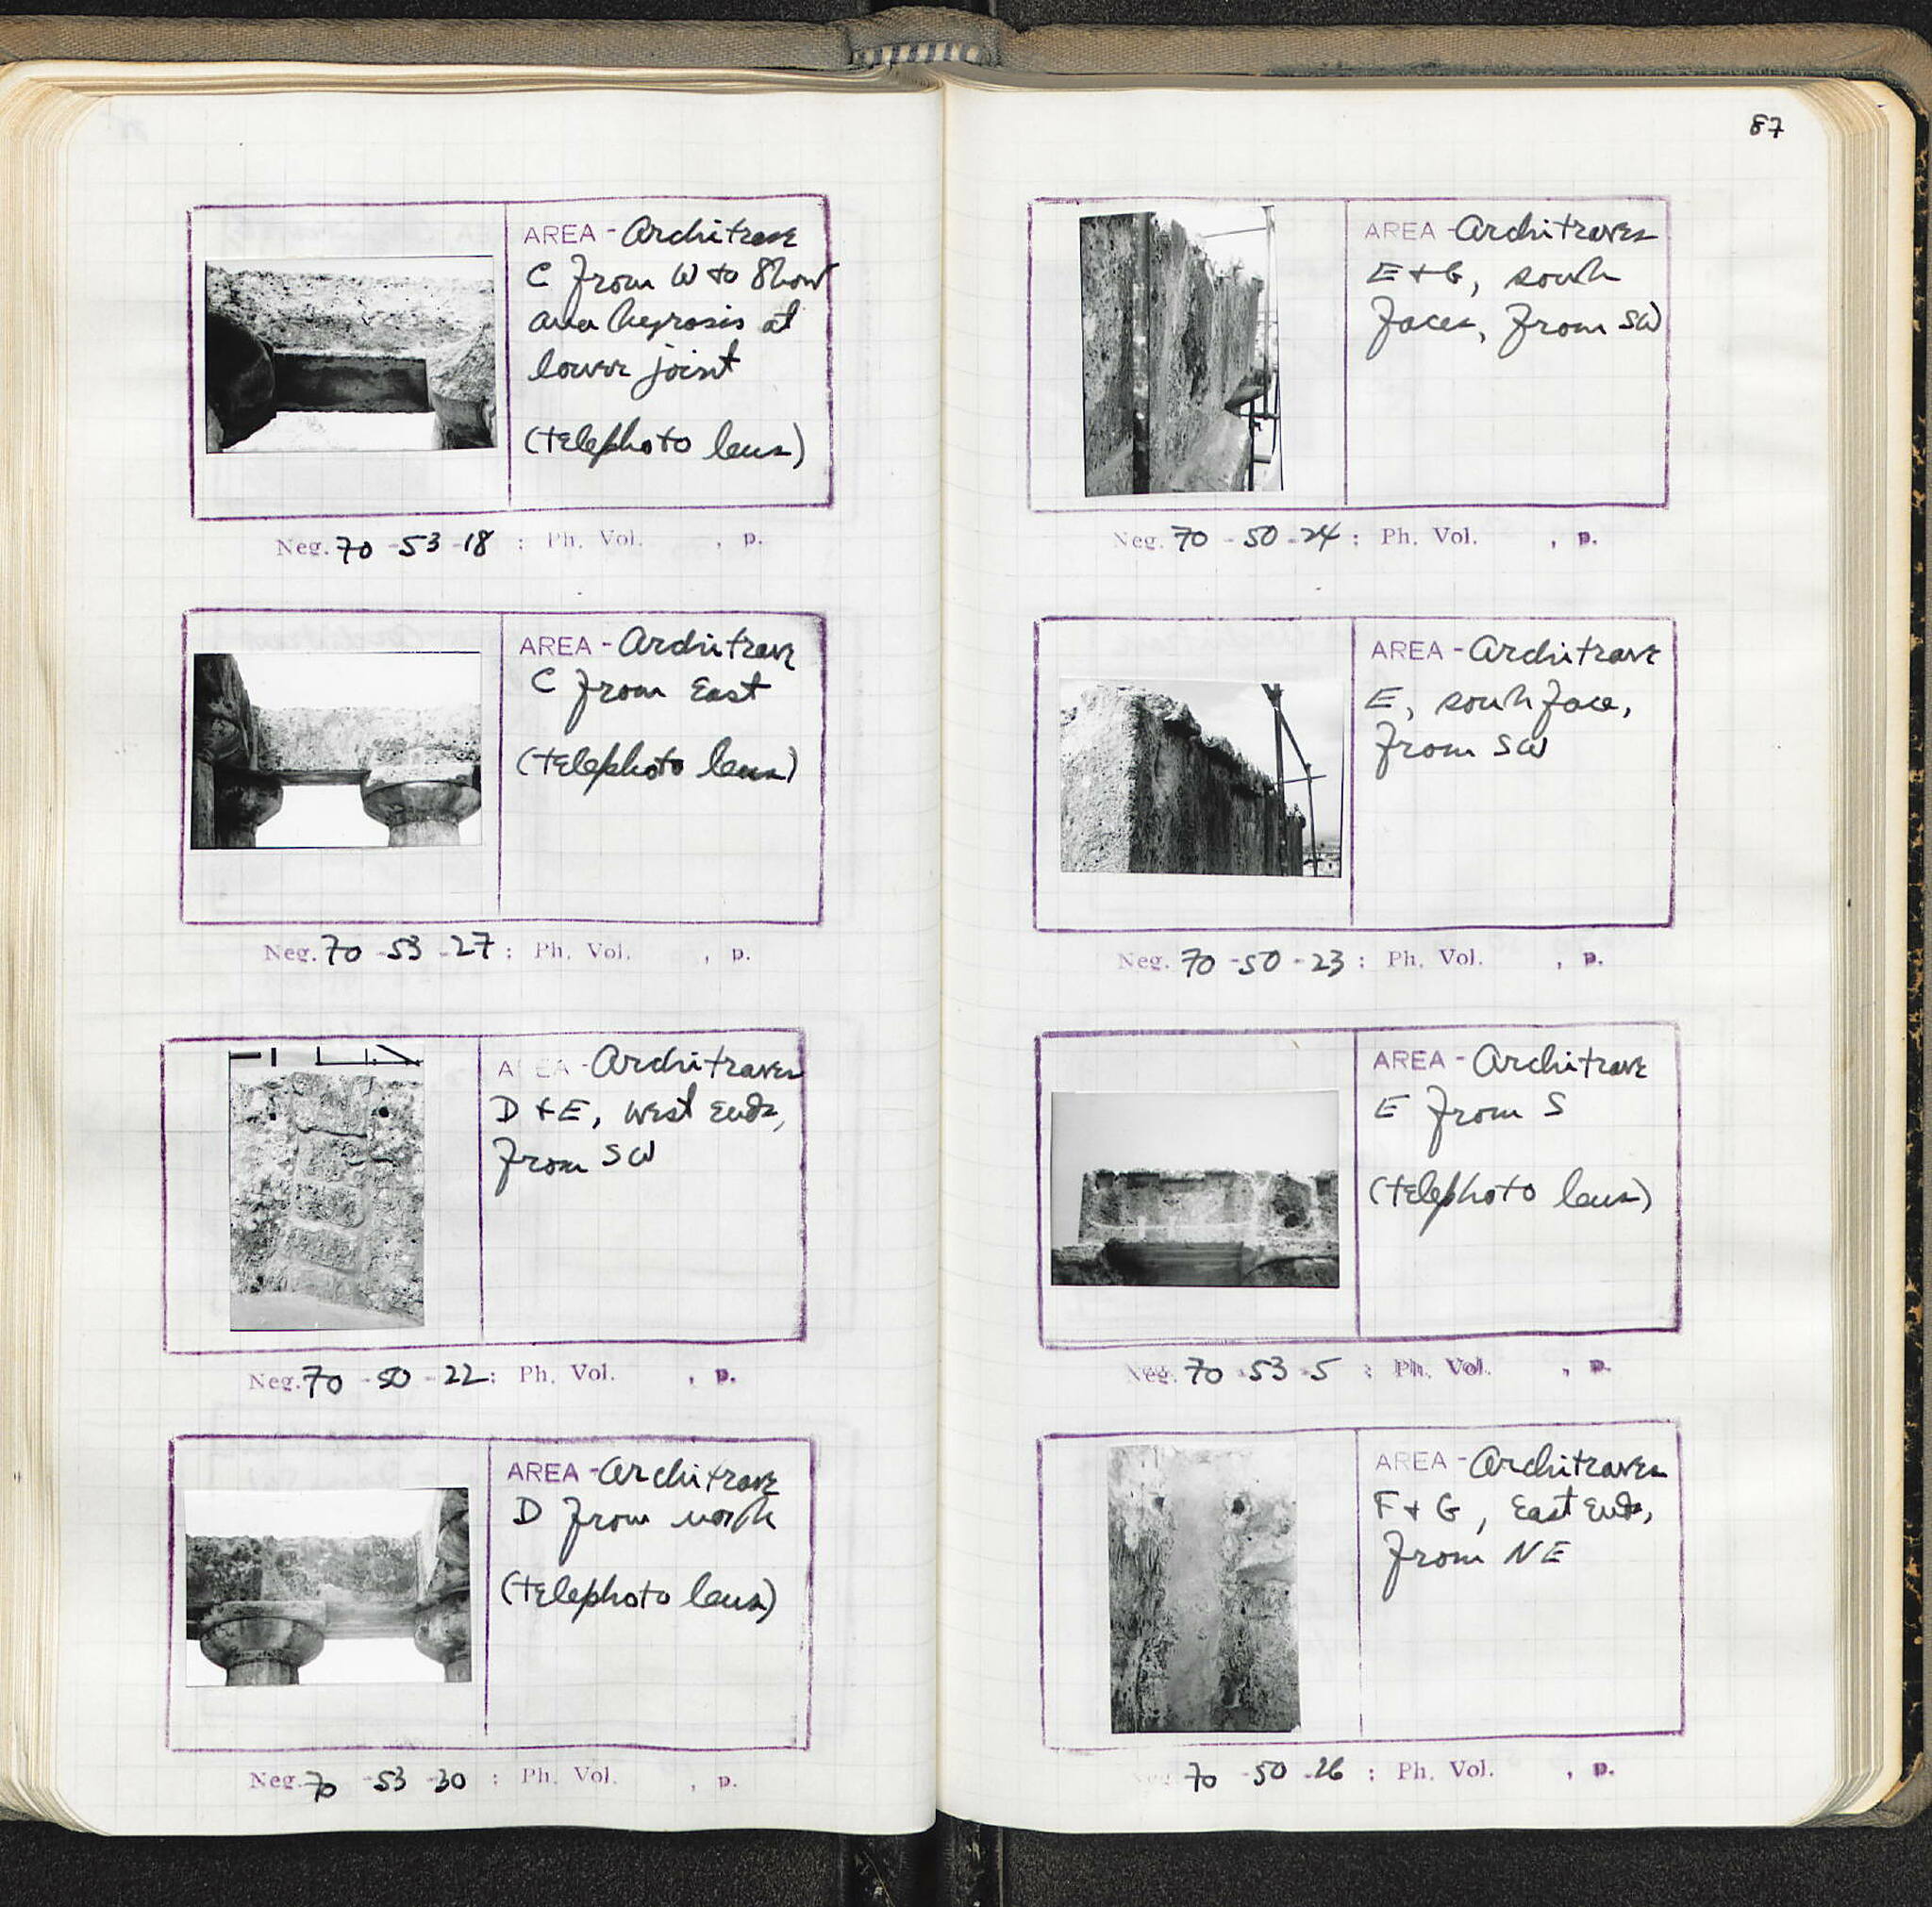 AREA - Architrave
C from W to Show
anathyrosis at
lower joint
(telephoto lens)
Neg. 70-53-18 : Ph. Vol. , p.
AREA - Architrave
C from East
(telephoto lens)
Neg. 70-53-27 : Ph. Vol. , p.
AREA - Architraves
D + E, West Ends,
from SW
Neg. 70-50-22 : Ph. Vol. , p.
AREA - Architrave
D from north
(telephoto lens)
Neg. 70-53-30 : Ph. Vol. , p.
87
AREA - Architraves
E + G, south
faces, from SW
Neg. 70-50-24 : Ph. Vol. , p.
AREA - Architrave
E, south face,
from SW
Neg. 70-50-23 : Ph. Vol. , p.
AREA - Architrave
E from S
(telephoto lens)
Neg. 70-53-5 : Ph. Vol. , p.
AREA - Architraves
F + G, East Ends,
from NE
Neg. 70-50-26 : Ph. Vol. , p.